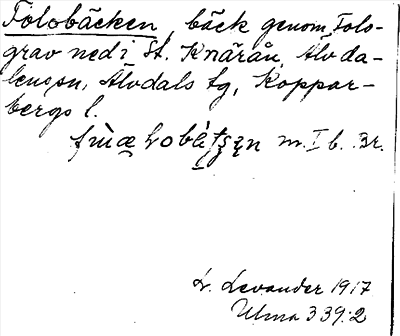 Folobäcken, bäck genom Folo-
grav ned i St. Knärån, Älvda-
lens sn, Älvdals tg, Koppar-
bergs l.
m. I b. 3r.
L. Levander 1917
Ulma 339:2